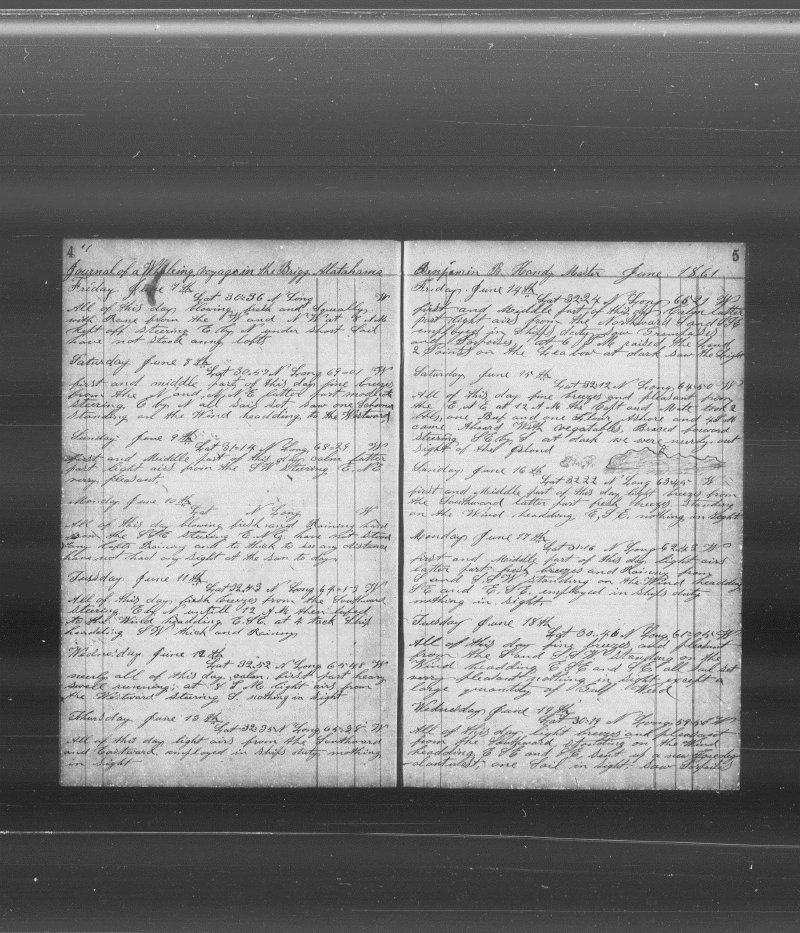 4
Journal of a Whaleing voyage in the Brigg Alatahama
Friday June 7th
Lat 30-36 N Long W
All of this day blowing fresh and Squally
with Raine from the W and N W at
kept off steering E by N under Short Sail
have not stuck anny lofts
Saturday June 8th
Lat 30-57 N Long 69-01 W
first and middle part of this day fine breezes
from the N and N N E latter part moderate
steering E by N all sail set saw one Schooner
standing on the Wind headding to the Westward
Sunday June 9th
Lat 31-14 N Long 68-28 W
first and Middle part of this day calm latter
part light airs from the SW steering E N E
very pleasant
Monday June 10th
Lat N Long W
All of this day blowing fresh and Raining hard
from the S S E steering E N E have not stood
anny lofts Raining and to thick to see any distance
have not had any sight at the sun to day
Tuesday June 11th
Lat 32,43 N Long 64-57 W
All of this day fresh breezes from the Southward
steering E by N untill 12 A M then luffed
to the Wind headding E S E at 4 tack Ship
headding S W thick and Rainny
Wednesday June 12th
Lat 32,52 N Long 65-48 W
nearly all of this day calm, first part heavy
swell running; at P M light airs from
the Westward steering S, nothing in sight
Thursday June 13th
Lat 32-35 N Long 65-38 W
All of this day light airs from the Southward
and Eastward, employed in ships duty nothing
in sight
5
Benjamin B. Handy Master June 1861
Friday June 14th
Lat 32-24 N Long 65-21 W
first and Meiddle part of this day Calm latter
part light airs from the Northward S and S E
employed in Ships duty saw Grampusses
and Porpoises, at 6 P M raised the Land
2 points on the Lea bow at dark saw the light
Saturday June 15th
Lat 32-12 N Long 64-50 W
All of this day fine breezes and pleasant from
the E N E at 12 A M the Capt and Mate took 2
bbls, one Beef and one Flour, ashore and 4 P M
came Aboard With vegatables, Braced forward
steering S E by S at dark we were nearly out
sight of the Island
Sunday June 16th
Lat 32-22 N Long 63-45 W
first and Middle part of this day light breezes from
the Southward latter part fresh breezes standing
on the Wind headding E, S E, nothing in sight
Monday June 17th
Lat 31-16 N Long 62-43 W
first and Middle part of this day light airs
latter part fresh breezes and Raining from
S and S S W standing on the Wind headding
S E and E S E employed in ships duty
nothing in sight
Tuesday June 18th
Lat 30-46 N Long 61-04 W
All of this day fine breezes and pleasant
from the S and S S W standing on the
Wind headding E S E and S E all sail set
very pleasant nothing in sight except a
large quantity of Gulf Weed
Wednesday June 19th
Lat 30-19 N Long 59-58 W
All of this day light breezes and pleasant
from the Southward standing on the Wind
headding E S E and S E bent a new
one Sail in sight, saw Porpoises